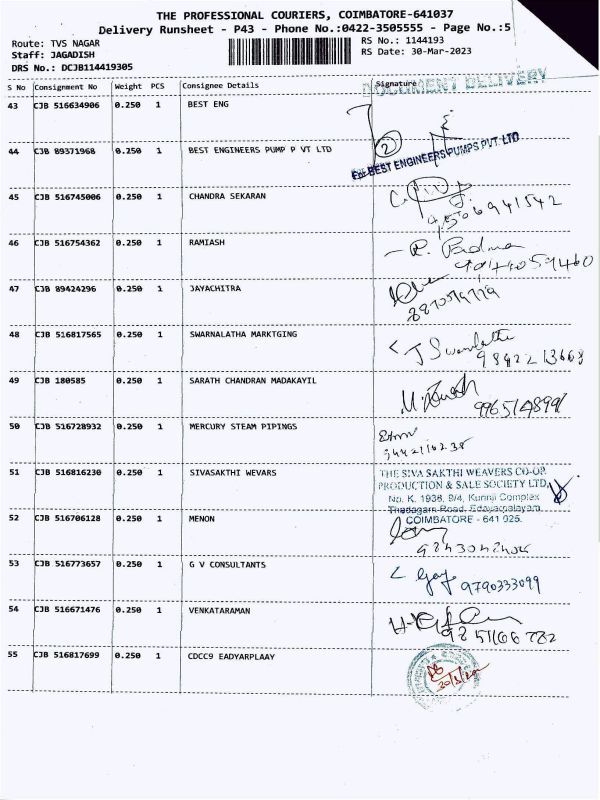 THE PROFESSIONAL COURIERS, COIMBATORE-641037
Delivery Runsheet - P43 - Phone No.:0422-3505555 - Page No.:5
Route: TVS NAGAR RS No.: 1144193
Staff: JAGADISH RS Date: 30-Mar-2023
DRS No.: DCJB114419305
DOCUMENT DELIVERY
S No Consignment No Weight PCS Consignee Details Signature
43 CJB 516634906 0.250 1 BEST ENG
2
44 CJB 89371968 0.250 1 BEST ENGINEERS PUMP P VT LTD
For BEST ENGINEERS PUMPS PVT. LTD
45 CJB 516745006 0.250 1 CHANDRA SEKARAN
46 CJB 516754362 0.250 1 RAMIASH
R. Padma
47 CJB 89424296 0.250 1 JAYACHITRA
48 CJB 516817565 0.250 1 SWARNALATHA MARKTGING
J Swarnlatha
98422 13668
49 CJB 180585 0.250 1 SARATH CHANDRAN MADAKAYIL
50 CJB 516728932 0.250 1 MERCURY STEAM PIPINGS
9442116238
51 CJB 516816230 0.250 1 SIVASAKTHI WEVARS
THE SIVA SAKTHI WEAVERS CO-OP.
PRODUCTION & SALE SOCIETY LTD.,
No. K. 1936, 9/4, Kunnji Complex
Thadagam Road, Edayarpalayam,
COIMBATORE - 641 025.
52 CJB 516706128 0.250 1 MENON
53 CJB 516773657 0.250 1 G V CONSULTANTS
9790333099
54 CJB 516671476 0.250 1 VENKATARAMAN
98 51166 782
55 CJB 516817699 0.250 1 CDCC9 EADYARPLAAY